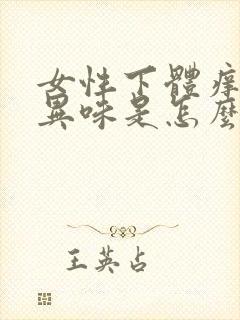 女性下體痒
異味是怎麼
王英占